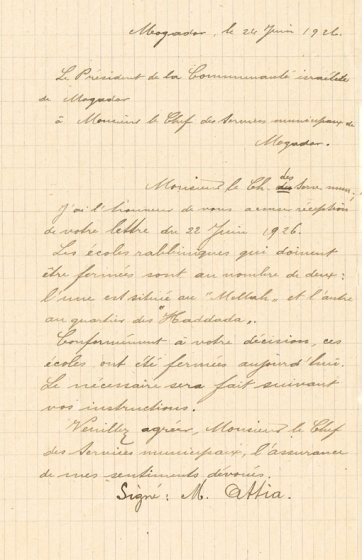 Mogador, le 24 Juin 1926.
Le Président de la Communauté israélite
de Mogador
à Monsieur le Chef des Services municipaux de
Mogador.
Monsieur le Ch. des Serv. mun.,
J'ai l'honneur de vous accuser réception
de votre lettre du 22 Juin 1926.
Les écoles rabbiniques qui doivent
être fermées sont au nombre de deux :
l'une est située au "Mellah" et l'autre
au quartier des "Haddada".
Conformément à votre décision, ces
écoles ont été fermées aujourd'hui.
Le nécessaire sera fait suivant
vos instructions.
Veuillez agréer, Monsieur le Chef
des Services municipaux, l'assurance
de mes sentiments dévoués.
Signé : M. Attia.